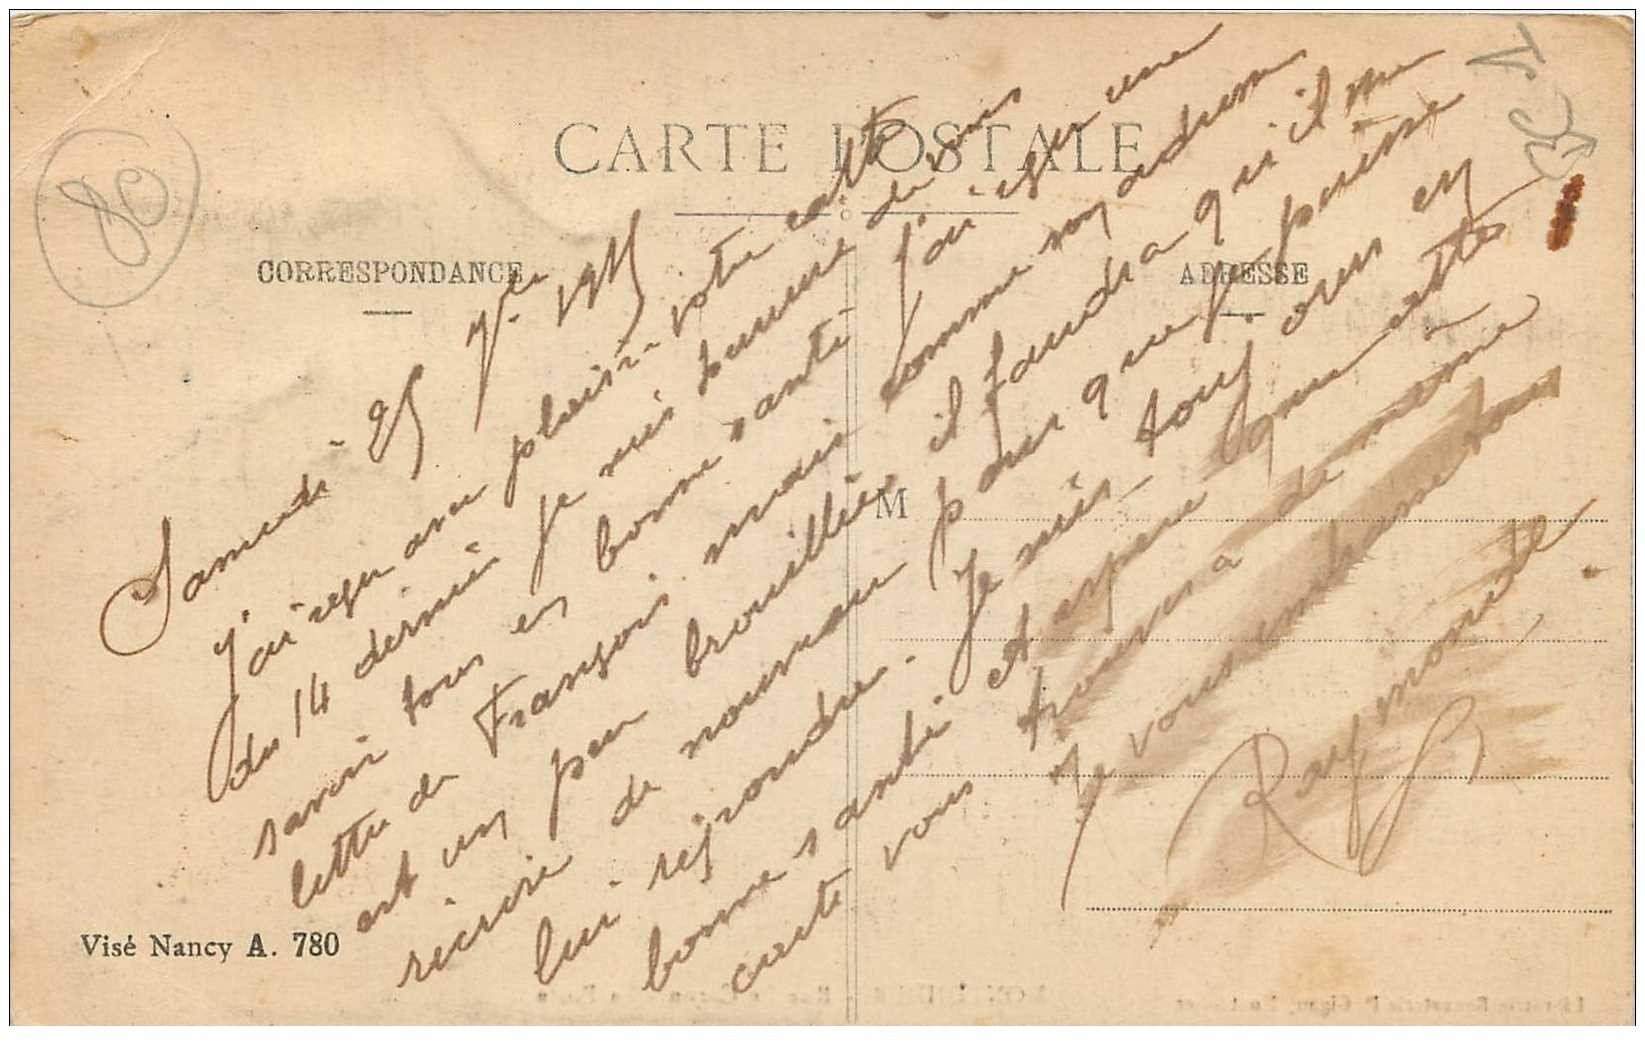 CARTE POSTALE
CORRESPONDANCE
ADRESSE
80
Samedi 25 7bre 1915
J'ai reçu avec plaisir votre carte
du 14 dernier je suis heureuse de vous
savoir tous en bonne santé j'ai reçu une
lettre de François mais comme son adresse
est un peu brouillée il faudra qu'il me
récrive de nouveau pour que je puisse
lui répondre. Je suis toujours en
bonne santé et espere que cette
carte vous trouvera de même
Je vous embrasse tous
Raymonde
M
Visé Nancy A. 780